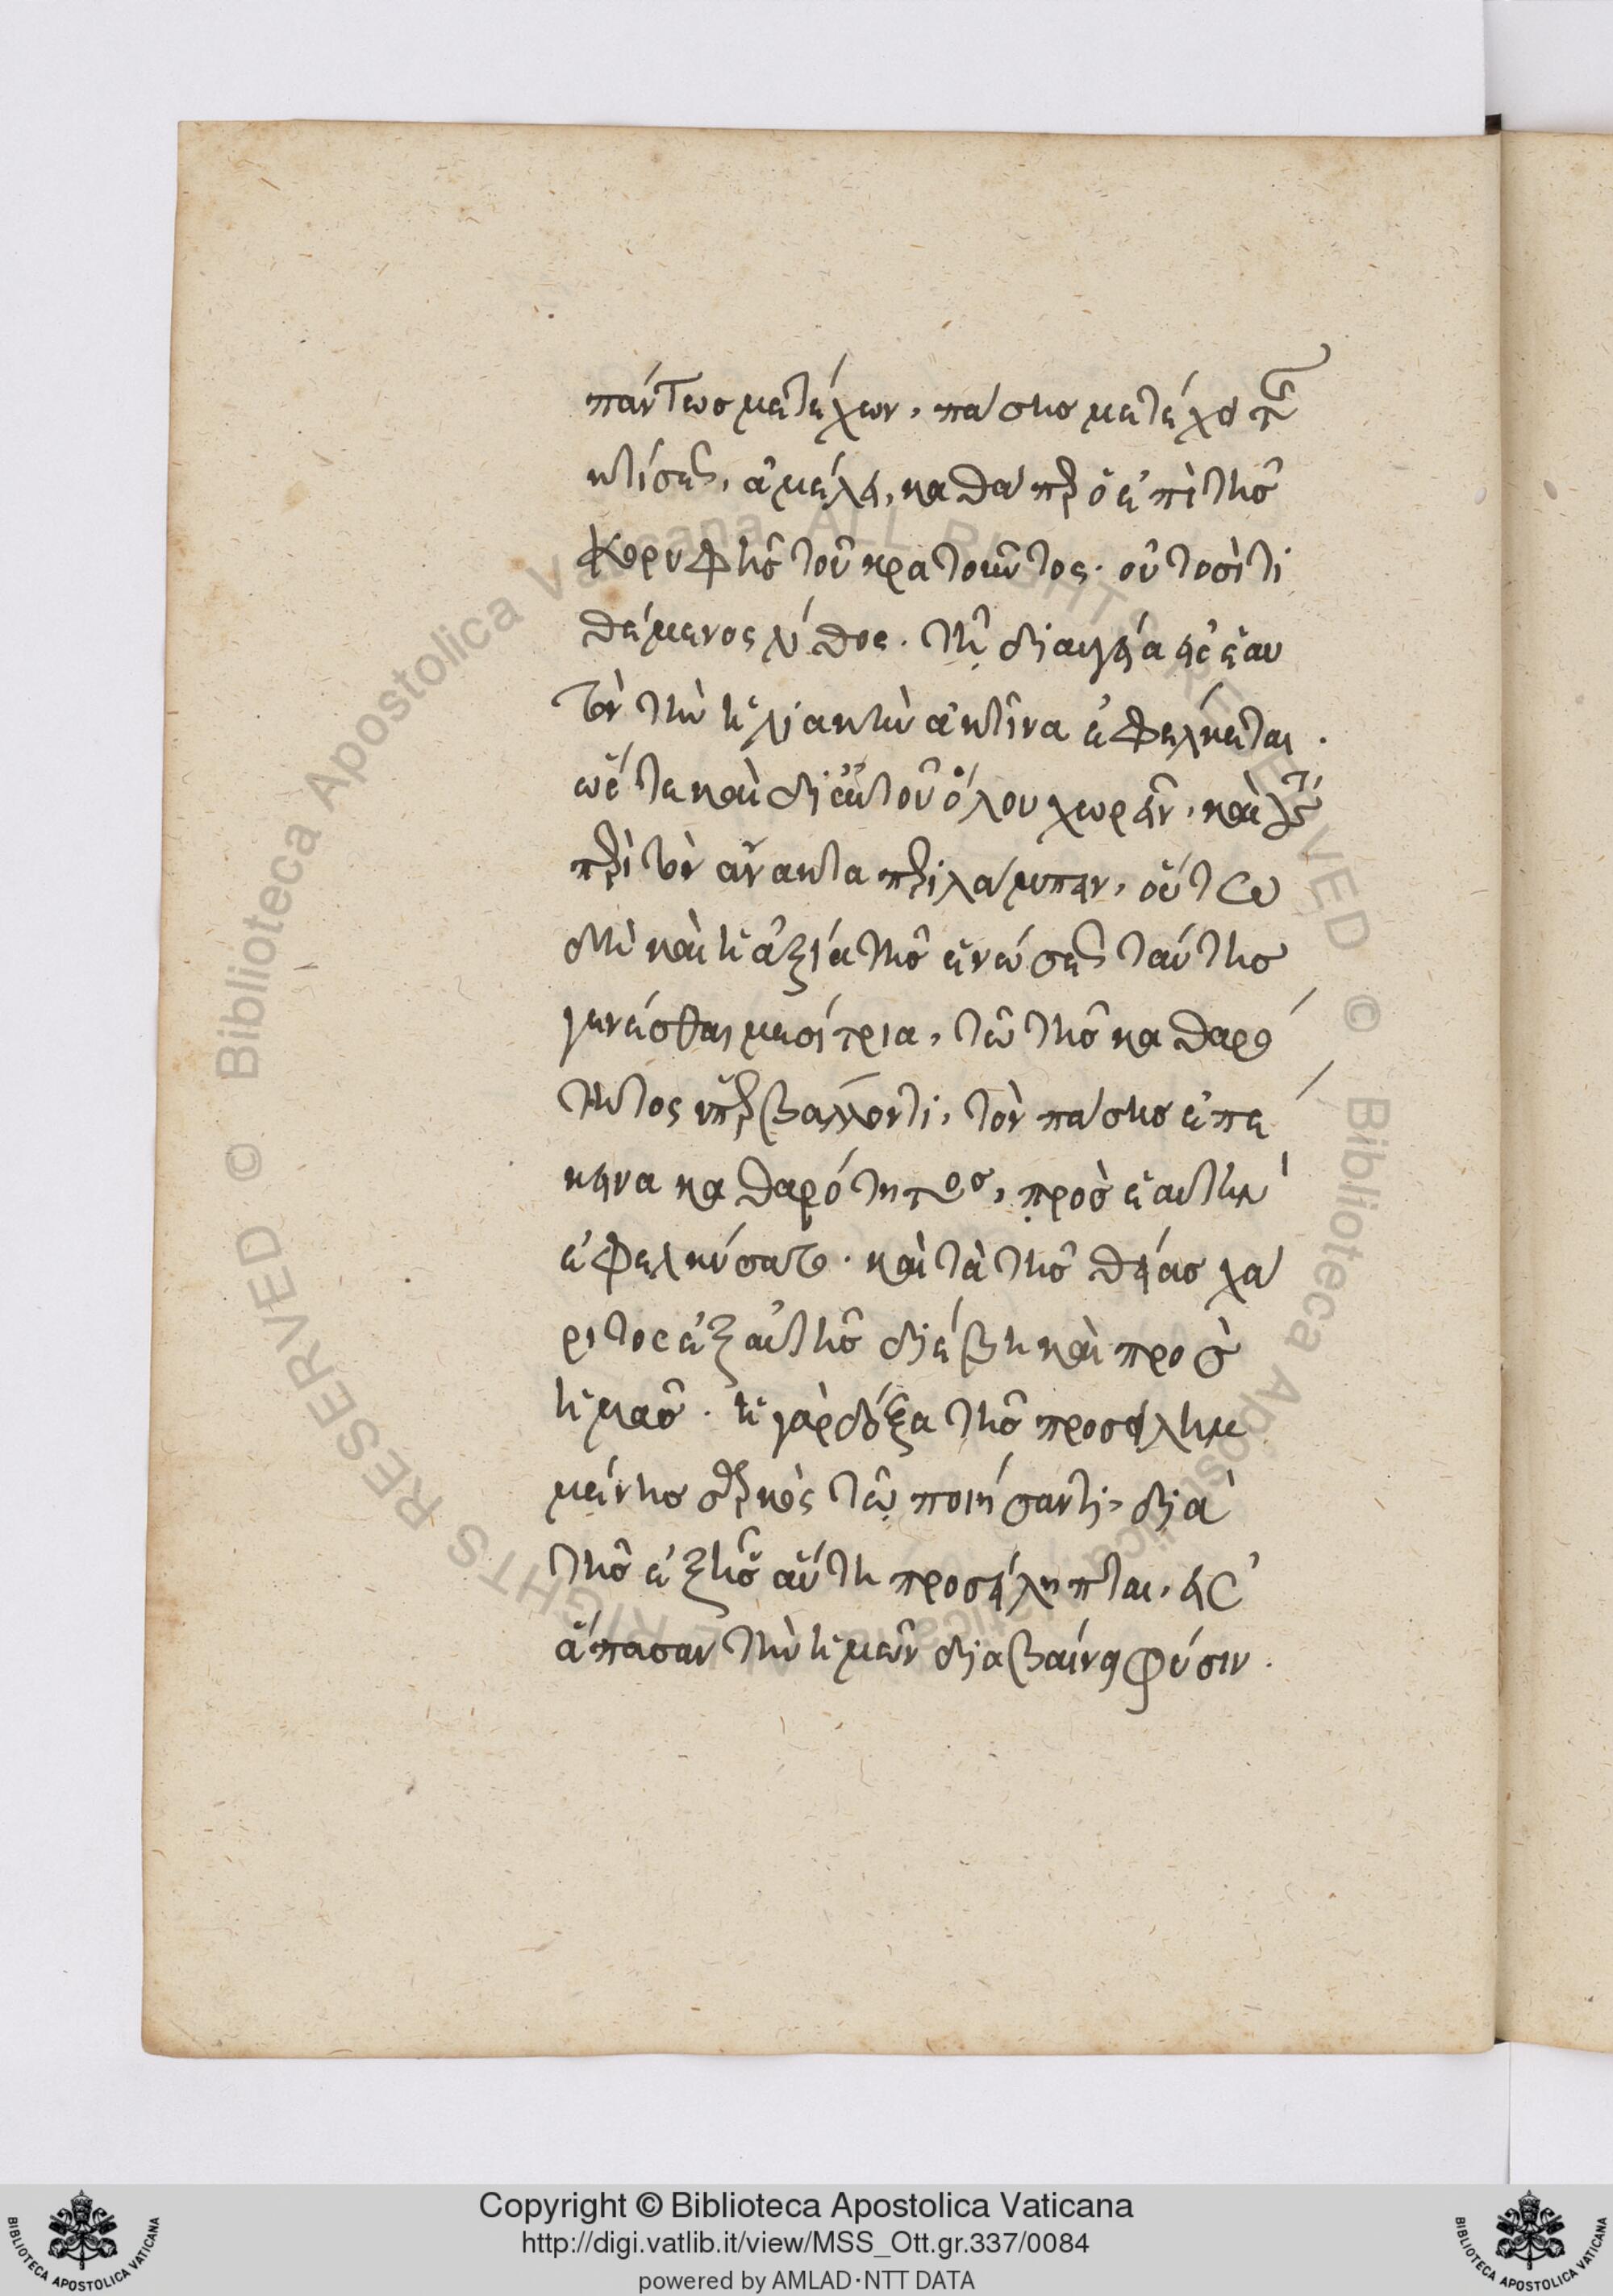 πάντως μετέχων, πάσης μετέχει τῆς
κτίσεως, ἀμέλει, καθάπερ ὁ ἐπὶ τῆς
κορυφῆς τοῦ κρατοῦντος οὑτοσὶ τι
θέμενος λίθος. τῇ διαυγείᾳ εἰς ἑαυ
τὸν τὴν ἡλιακὴν ἀκτῖνα ἐφέλκεται.
ὥστε καὶ δι' αὐτοῦ ὅλου χωρεῖν, καὶ
περὶ τὸν ἄνακτα περιλάμπειν, οὕτω
δὴ καὶ ἡ ἀξία τῆς ἑνώσεως ταύτης
γενέσθαι μεσίτρια, τῷ τῆς καθαρό
τητος ὑπερβάλλοντι, τὸν πάσης ἐπέ
κεινα καθαρότητος, πρὸς ἑαυτὴν
ἐφελκύσατο. καὶ τὰ τῆς θείας χά
ριτος ἐξ αὐτῆς διέβη καὶ πρὸς
ἡμᾶς. ἡ γὰρ δόξα τῆς προσειλημ
μένης σαρκὸς τῷ ποιήσαντι, διὰ
τῆς ἐξ ἧς αὕτη προσείληπται, εἰς
ἅπασαν τὴν ἡμῶν διαβαίνει φύσιν.
Copyright © Biblioteca Apostolica Vaticana
http://digi.vatlib.it/view/MSS_Ott.gr.337/0084
powered by AMLAD·NTT DATA